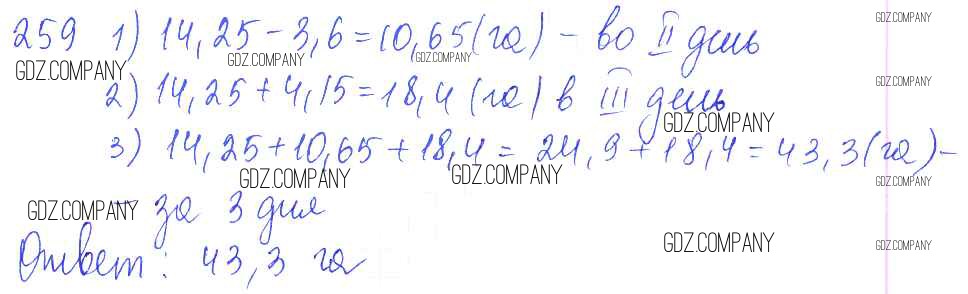 259 1) 14,25 - 3,6 = 10,65 (га) - во II день
GDZ.COMPANY GDZ.COMPANY GDZ.COMPANY GDZ.COMPANY
2) 14,25 + 4,15 = 18,4 (га) в III день
GDZ.COMPANY GDZ.COMPANY
3) 14,25 + 10,65 + 18,4 = 24,9 + 18,4 = 43,3 (га) -
GDZ.COMPANY GDZ.COMPANY GDZ.COMPANY
- за 3 дня
GDZ.COMPANY
Ответ: 43,3 га
GDZ.COMPANY GDZ.COMPANY